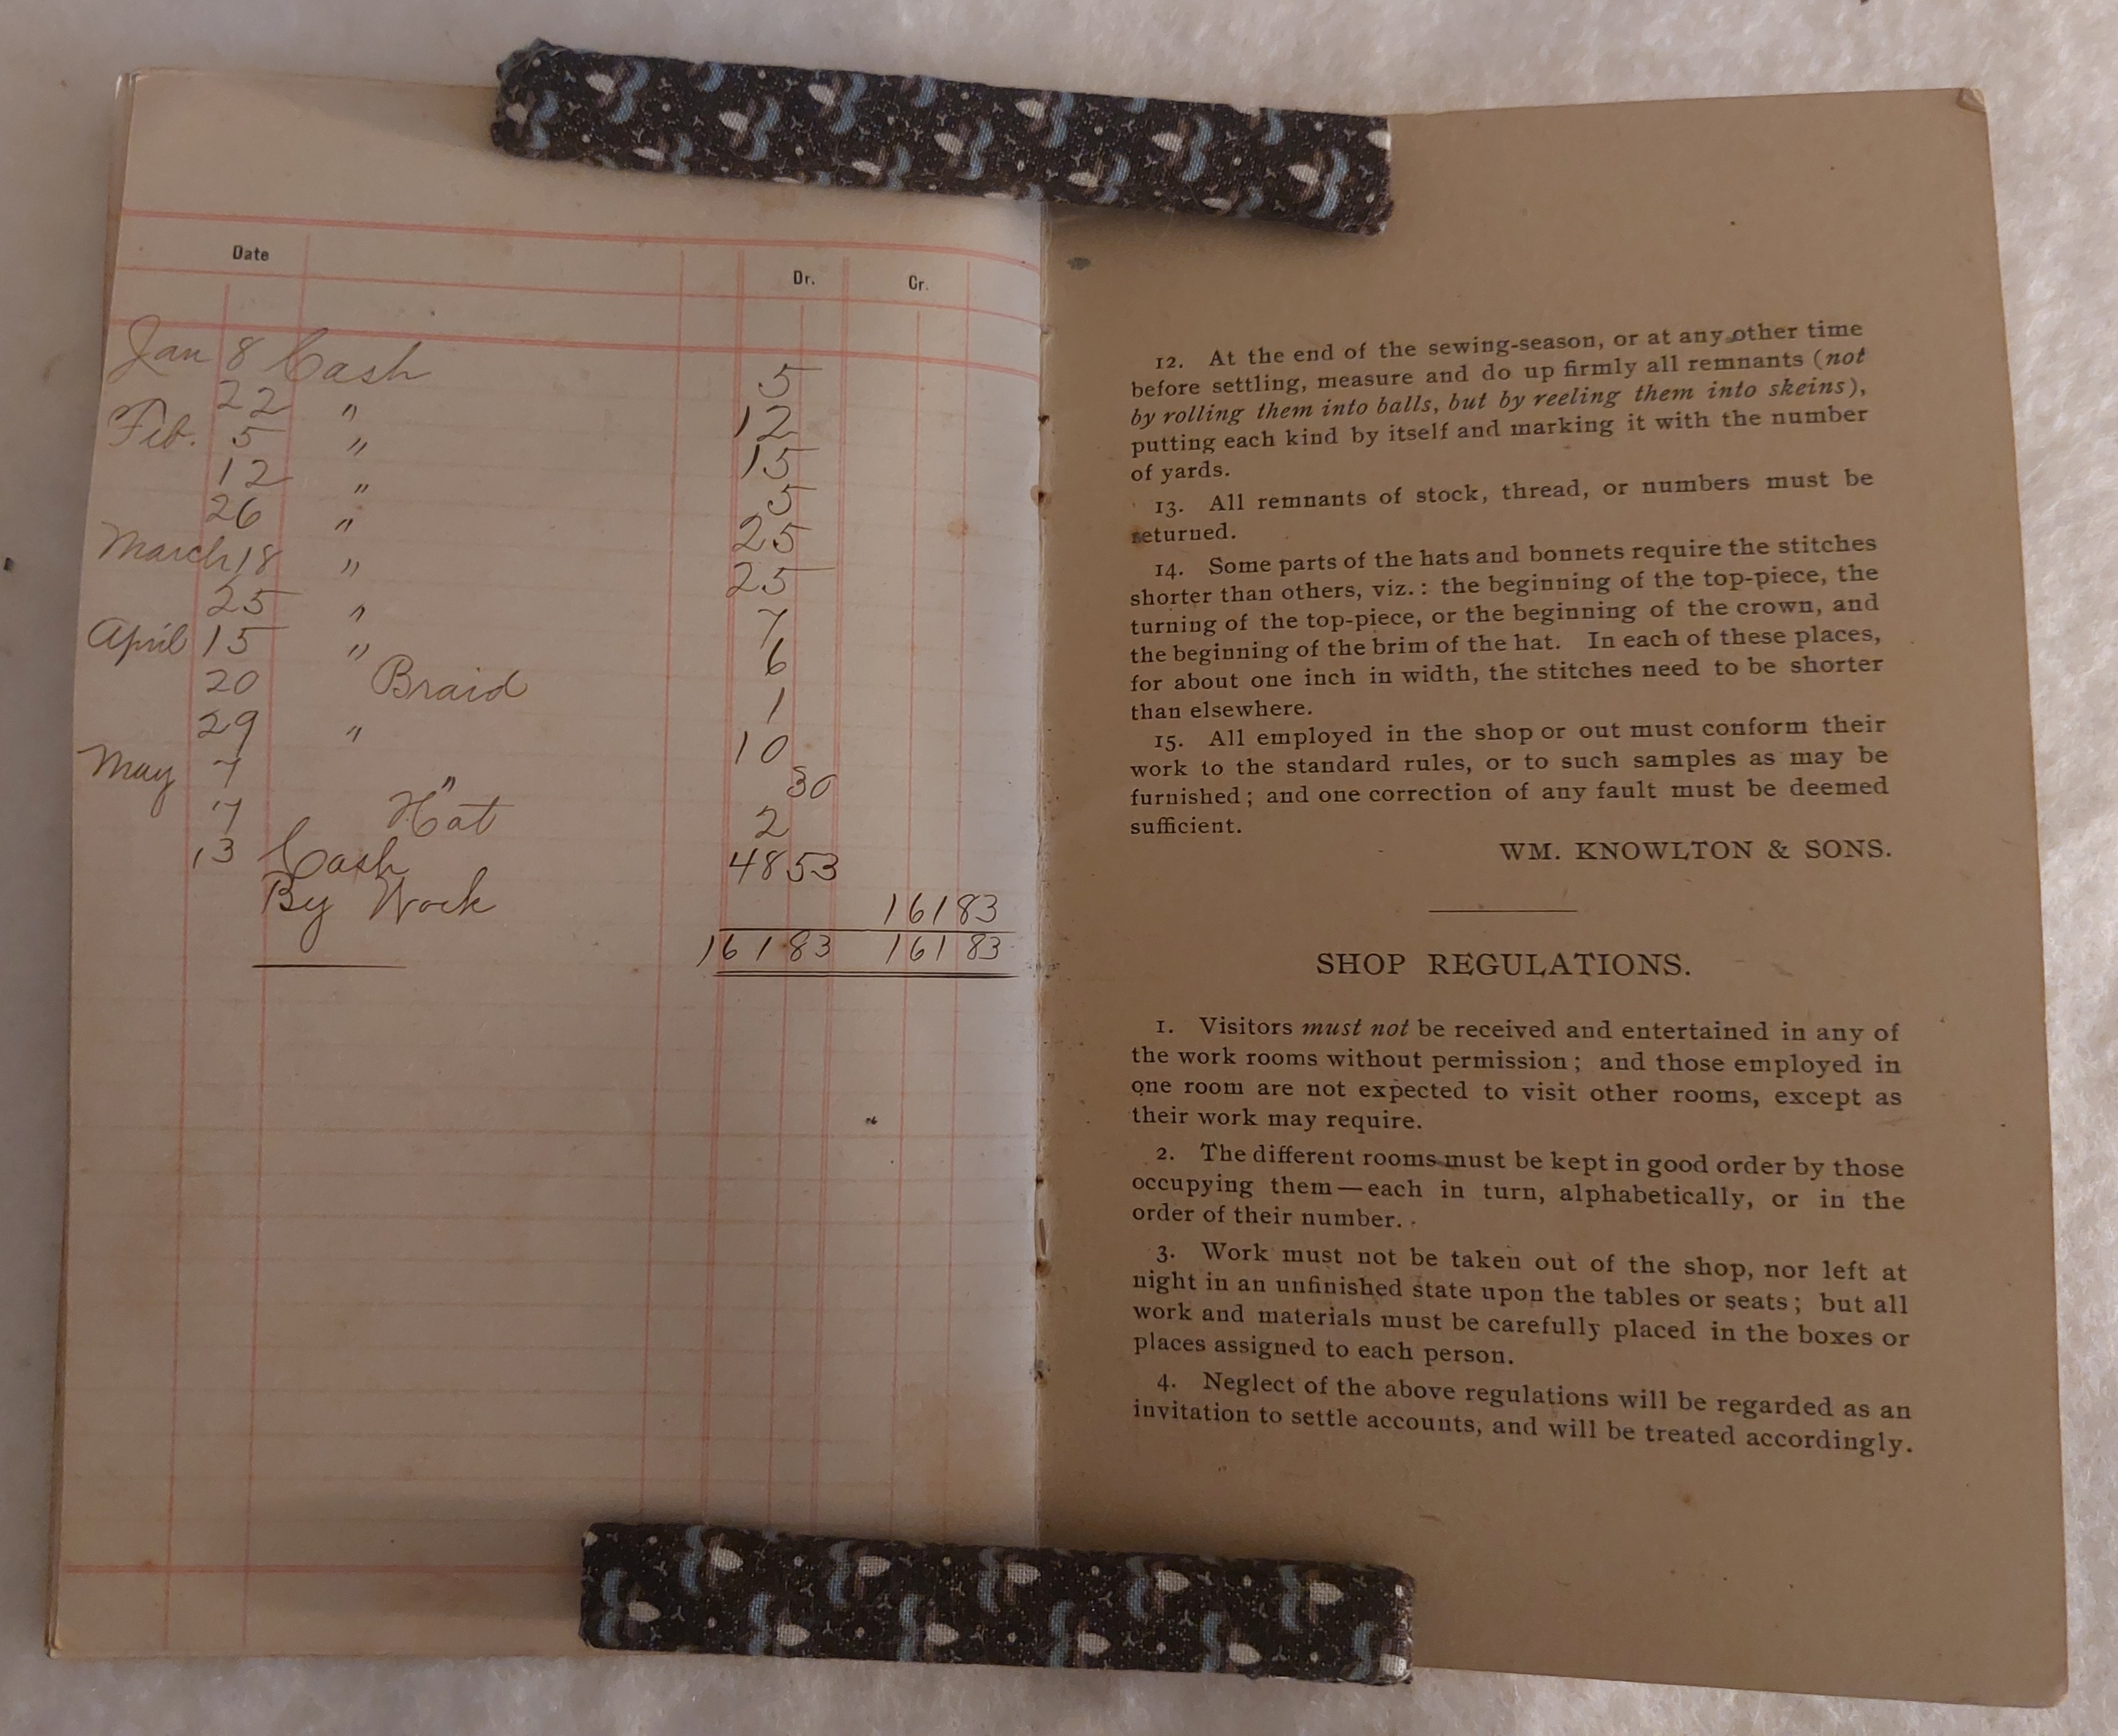 Date Dr. Cr.
Jan 8 Cash 5
22 " 12
Feb. 5 " 15
12 " 5
26 " 25
March 18 " 25
25 " 7
April 15 " 6
20 Braid 1
29 " 10
May 7 " 30
7 Hat 2
13 Cash 48 53
By Work 161 83
161 83 161 83
12. At the end of the sewing-season, or at any other time
before settling, measure and do up firmly all remnants (not
by rolling them into balls, but by reeling them into skeins),
putting each kind by itself and marking it with the number
of yards.
13. All remnants of stock, thread, or numbers must be
returned.
14. Some parts of the hats and bonnets require the stitches
shorter than others, viz.: the beginning of the top-piece, the
turning of the top-piece, or the beginning of the crown, and
the beginning of the brim of the hat. In each of these places,
for about one inch in width, the stitches need to be shorter
than elsewhere.
15. All employed in the shop or out must conform their
work to the standard rules, or to such samples as may be
furnished; and one correction of any fault must be deemed
sufficient.
WM. KNOWLTON & SONS.
SHOP REGULATIONS.
1. Visitors must not be received and entertained in any of
the work rooms without permission; and those employed in
one room are not expected to visit other rooms, except as
their work may require.
2. The different rooms must be kept in good order by those
occupying them—each in turn, alphabetically, or in the
order of their number.
3. Work must not be taken out of the shop, nor left at
night in an unfinished state upon the tables or seats; but all
work and materials must be carefully placed in the boxes or
places assigned to each person.
4. Neglect of the above regulations will be regarded as an
invitation to settle accounts, and will be treated accordingly.